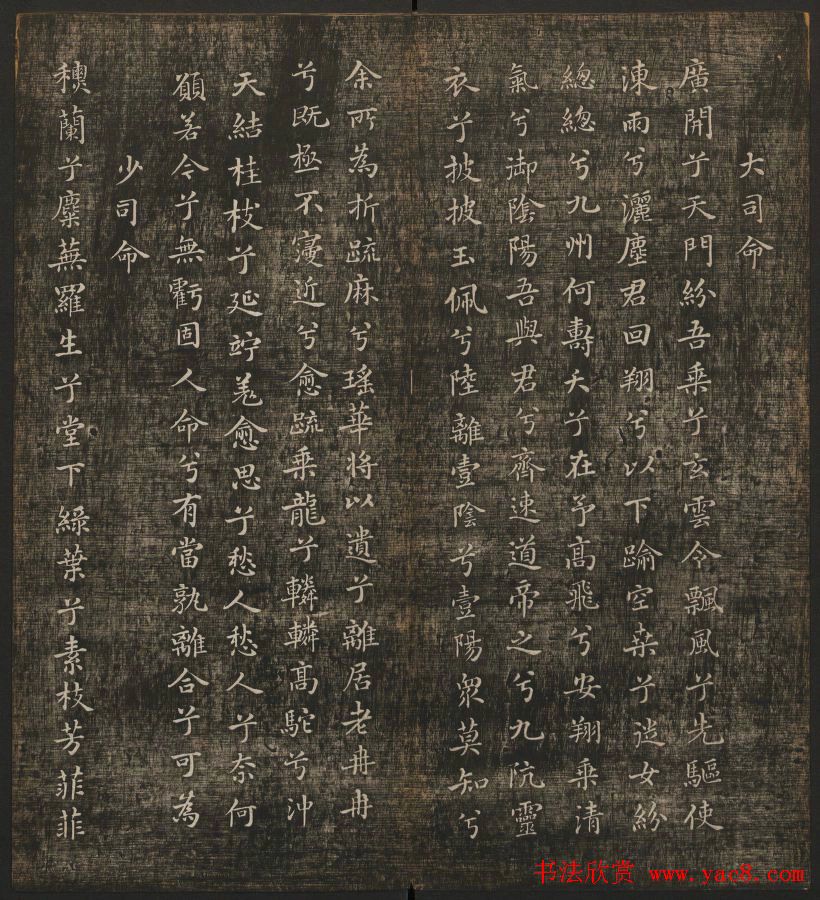 大司命
廣開兮天門紛吾乗兮玄雲令飄風兮先驅使
涷雨兮灑塵君回翔兮以下踰空桒兮從女紛
總總兮九州何壽夭兮在予髙飛兮安翔乗清
氣兮御陰陽吾與君兮齊速道帝之兮九阬靈
衣兮披披玉佩兮陸離壹陰兮壹陽衆莫知兮
余所為折疏麻兮瑤華將以遺兮離居老冉冉
兮既極不寖近兮愈疏乗龍兮轔轔髙駝兮沖
天結桂枝兮延竚羌愈思兮愁人愁人兮奈何
願若今兮無虧固人命兮有當孰離合兮可為
少司命
穮蘭兮麋蕪羅生兮堂下緑葉兮素枝芳菲菲
书法欣赏 www.yac8.com